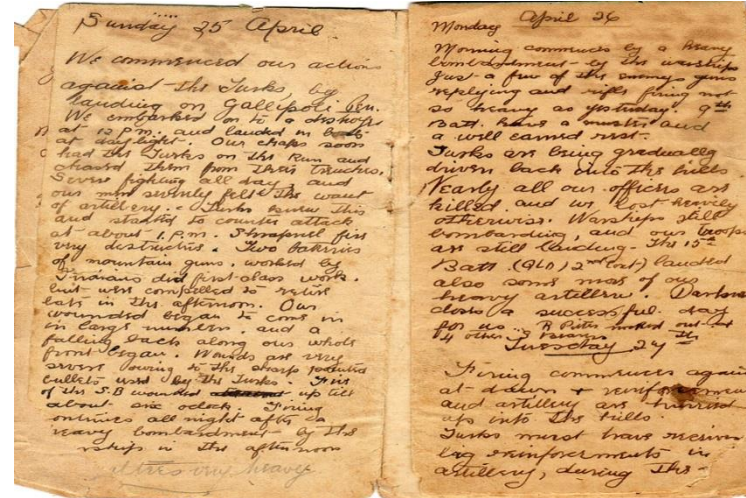 Sunday 25 April.
We commenced our actions
against the Turks, by
landing on Gallipoli Pen.
We embarked on to a destroyer
at 12 p.m. and landed in boats
at daylight. Our chaps soon
had the Turks on the run and
chased them from their trenches,
Severe fighting all day and
our men severely felt the want
of artillery. Turks knew this
and started to counter attack
at about 1. p.m. Shrapnel fire
very destructive. Two batteries
of mountain guns, worked by
Indians did first-class work.
but were compelled to retire
late in the afternoon. Our
wounded began to come in
in large numbers, and a
falling back along our whole
front began. Wounds are very
severe owing to the sharp pointed
bullets used by the Turks. Five
of the S.B wounded up till
about six oclock. Firing
ontinues all night after a
heavy bombardment by the
rships in the afternoon
very heavy
Monday April 26
Morning commences by a heavy
bombardment by the warships
just a few of the enemys guns
replying and rifle firing not
so heavy as yesterday. 9th
Batt. have a muster and
a well earned rest.
Turks are being gradually
driven back onto the hills
early all our officers are
killed, and we lost heavily
otherwise. Warships still
bombarding, and our troops
are still landing. The 15th
Batt. (QLD) 2nd Cont) landed
also some more of our
heavy artillery. Darkne
closes a successful day
for us. R Pitts nocked out
4 other
Tuesday 27th
Firing commences again
at dawn + reinforcemen
and artillery are hurried
up into the hills.
Turks must have receive
big reinforcements in
artillery, during the